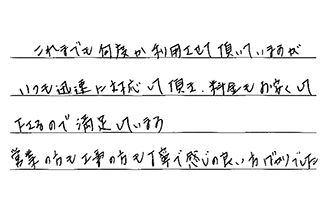 これまでも何度か利用させて頂いていますが
いつも迅速に対応して頂き、料金もお安くして
下さるので満足しています
営業の方も工事の方も丁寧で感じの良い方ばかりでした